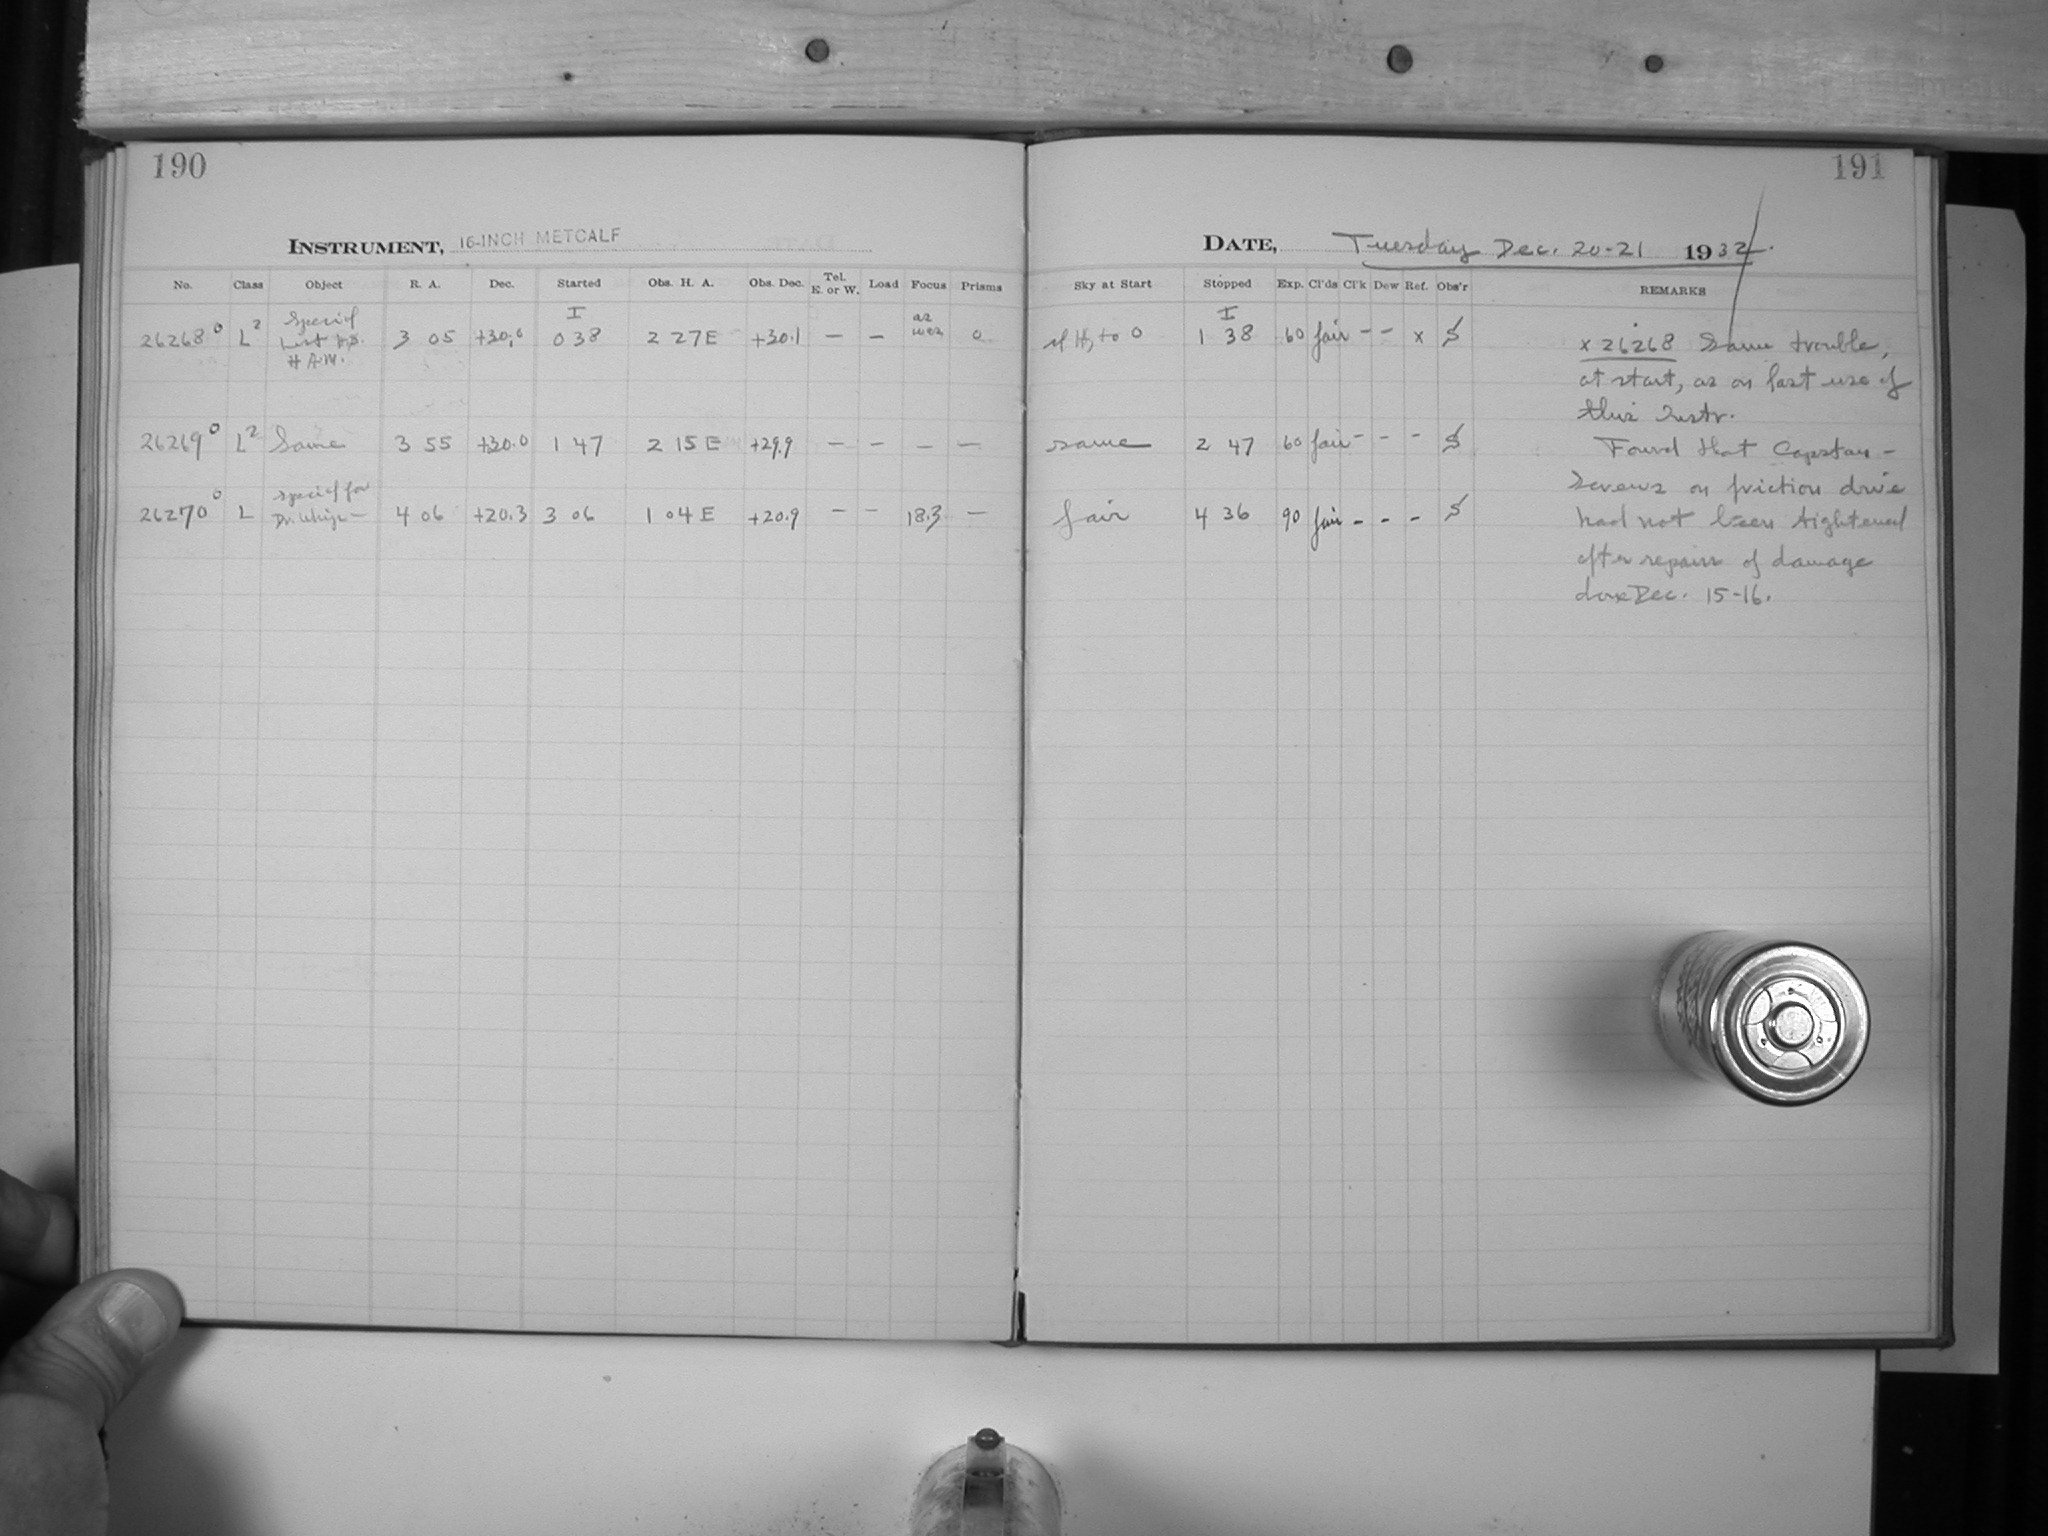 190
191
INSTRUMENT, 16-INCH METCALF
DATE, Tuesday Dec. 20-21 1932.
No. Class Object R. A. Dec. Started Obs. H. A. Obs. Dec. Tel. E. or W. Load Focus Prisms
Sky at Start Stopped Exp. Cl'ds Cl'k Dew Ref. Obs'r REMARKS
26268⁰ L² Special List H.A.M. 3 05 +30.0 I 0 38 2 27 E +30.1 — — as was 0
to 0 I 1 38 60 fair - - x S
26269⁰ L² Same 3 55 +30.0 1 47 2 15 E +29.9 — — — —
same 2 47 60 fair - - - S
26270⁰ L special for Dr. Whip— 4 06 +20.3 3 06 1 04 E +20.9 — — 18.3 —
fair 4 36 90 fair - - - S
x 26268 Same trouble,
at start, as on last use of
this Instr.
Found that Capstan-
Screws on friction drive
had not been tightened
after repair of damage
Dec. 15-16.